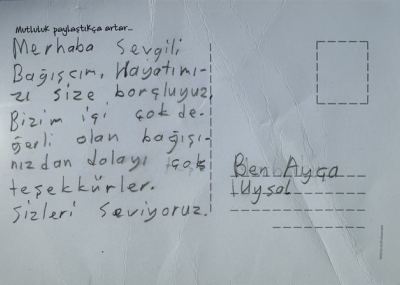 Mutluluk paylaştıkça artar...
Merhaba Sevgili
Bağışçım, Hayatımı-
zı size borçluyuz.
Bizim içi çok de-
ğerli olan bağışı-
nızdan dolayı çok
teşekkürler.
Sizleri seviyoruz.
Ben Ayça
Uysal